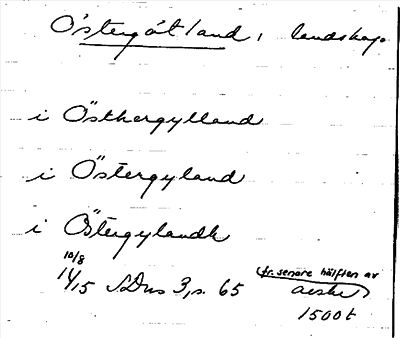 Östergötland, landskap
i Östhergylland
i Östergyland
i Östergylandh
10/8 1415 SDns 3, s. 65
(fr. senare hälften av
1500t